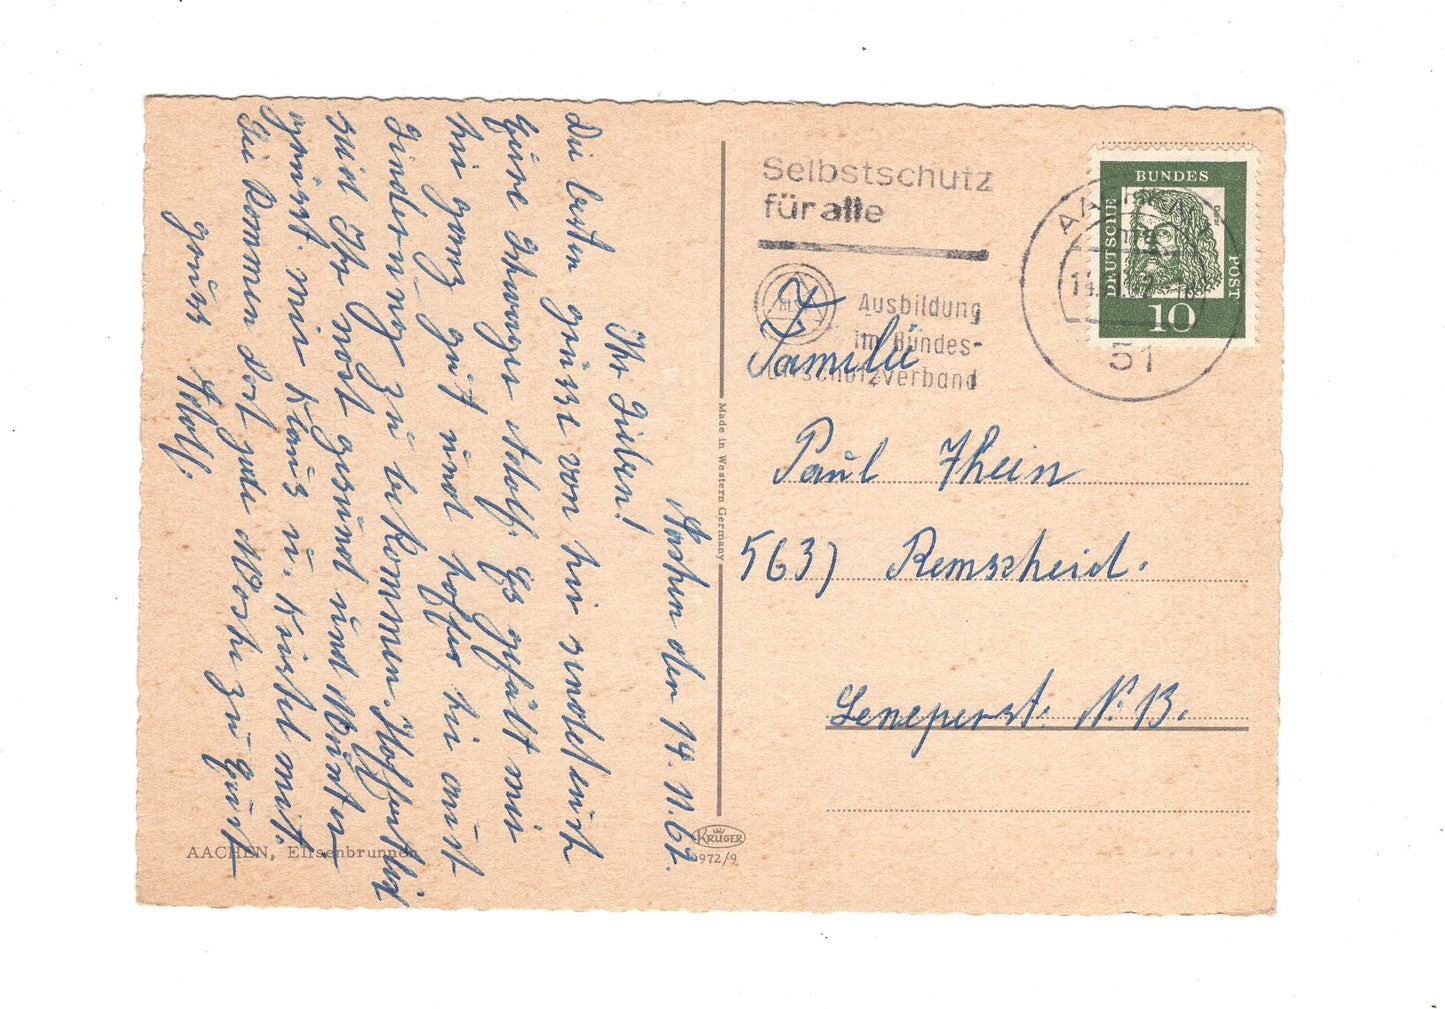 Aachen den 14.11.62.
Ihr Lieben!
Die besten grüsse von hir sendet euch
Adolf. Es gefält mir
hir ganz gut und hoffe hir auch
zu bekommen. Hoffentlich
seid Ihr noch gesund und Munter,
grüsst mir Klaus u.
Wir kommen dort Woche zurük
gruss Adolf.
AACHEN, Elisenbrunnen
Made in Western Germany
KRÜGER
972/9
Selbstschutz
für alle
Ausbildung
im Bundes-
luftschutzverband
AACHEN
51
DEUTSCHE
BUNDES
POST
Dürer
10
Familie
Paul Thein
563) Remscheid.
Leneperst. N. 13.